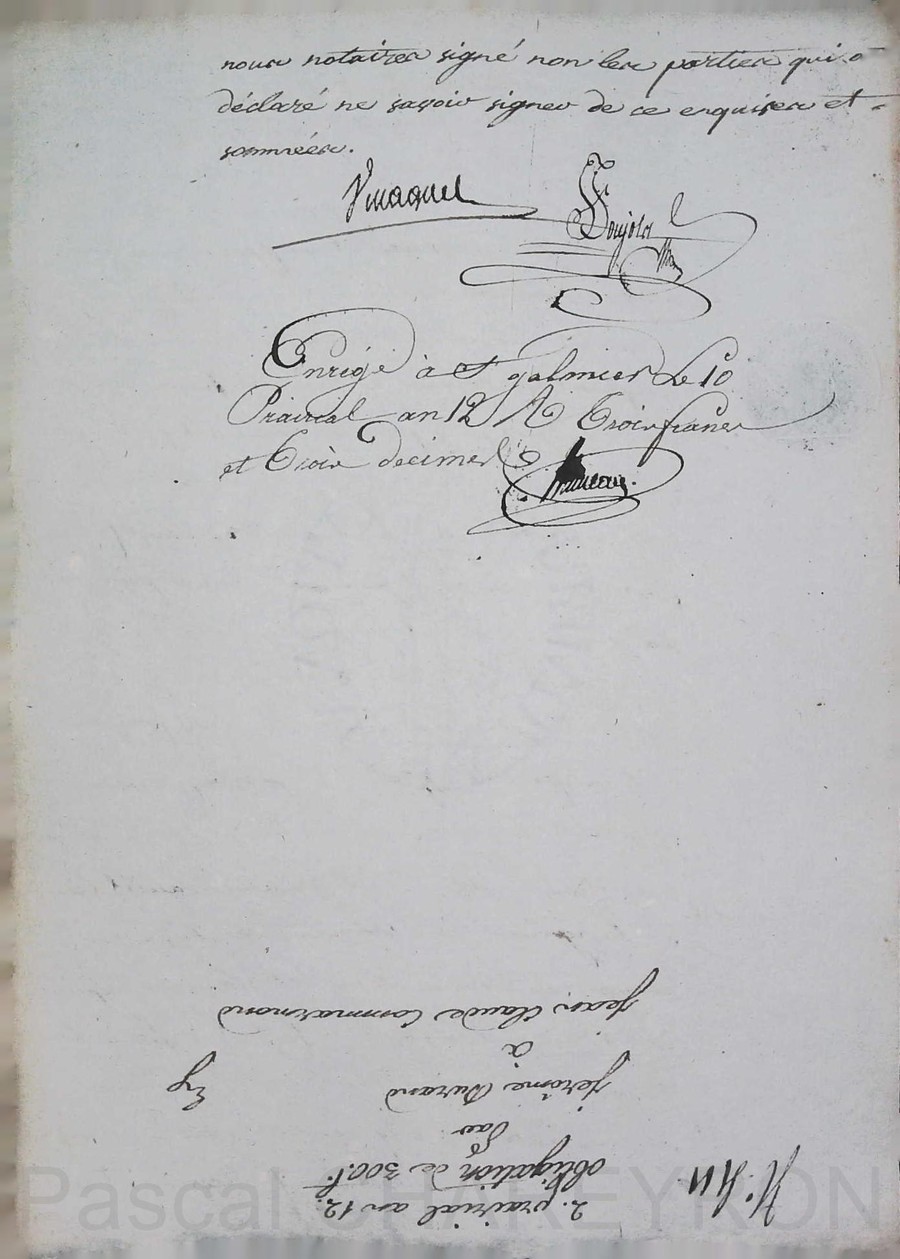 nous notaires signé non les parties qui o
déclaré ne savoir signer de ce enquises et
sommées.
Vmaquel
Poujols
Enrégé à St galmier Le 10
Prairial an 12 R Trois francs
et Trois decimes
2. prairial an 12.
obligation de 300 f.
Par
Jerome Durand
à
Jean Claude Commarmond
Pascal CHAREYRON